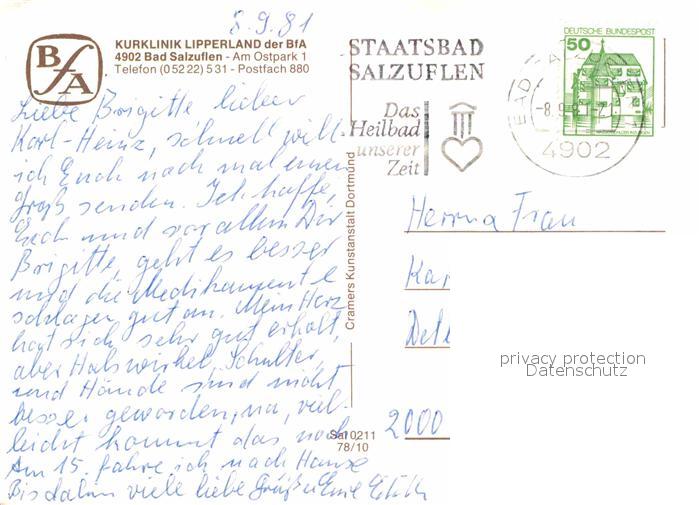 8.9.81
BfA
KURKLINIK LIPPERLAND der BfA
4902 Bad Salzuflen - Am Ostpark 1
Telefon (05222) 531 - Postfach 880
STAATSBAD
SALZUFLEN
Das
Heilbad
unserer
Zeit
DEUTSCHE BUNDESPOST
50
4902
Liebe Brigitte lieber
Karl-Heinz, schnell will
ich Euch noch mal einen
Gruß senden. Ich hoffe,
Euch und vor allem Dir
Brigitte, geht es besser
und die Medikamente
schlagen gut an. Mein Herz
hat sich sehr gut erholt,
aber Halswirbel, Schulter,
und Hände sind nicht
besser geworden, na, viel-
leicht kommt das noch
Am 15. fahre ich nach Hause
Bis dahin viele liebe Grüße
Cramers Kunstanstalt Dortmund
Sal 0211
78/10
Herrn u Frau
Kar
2000
privacy protection
Datenschutz